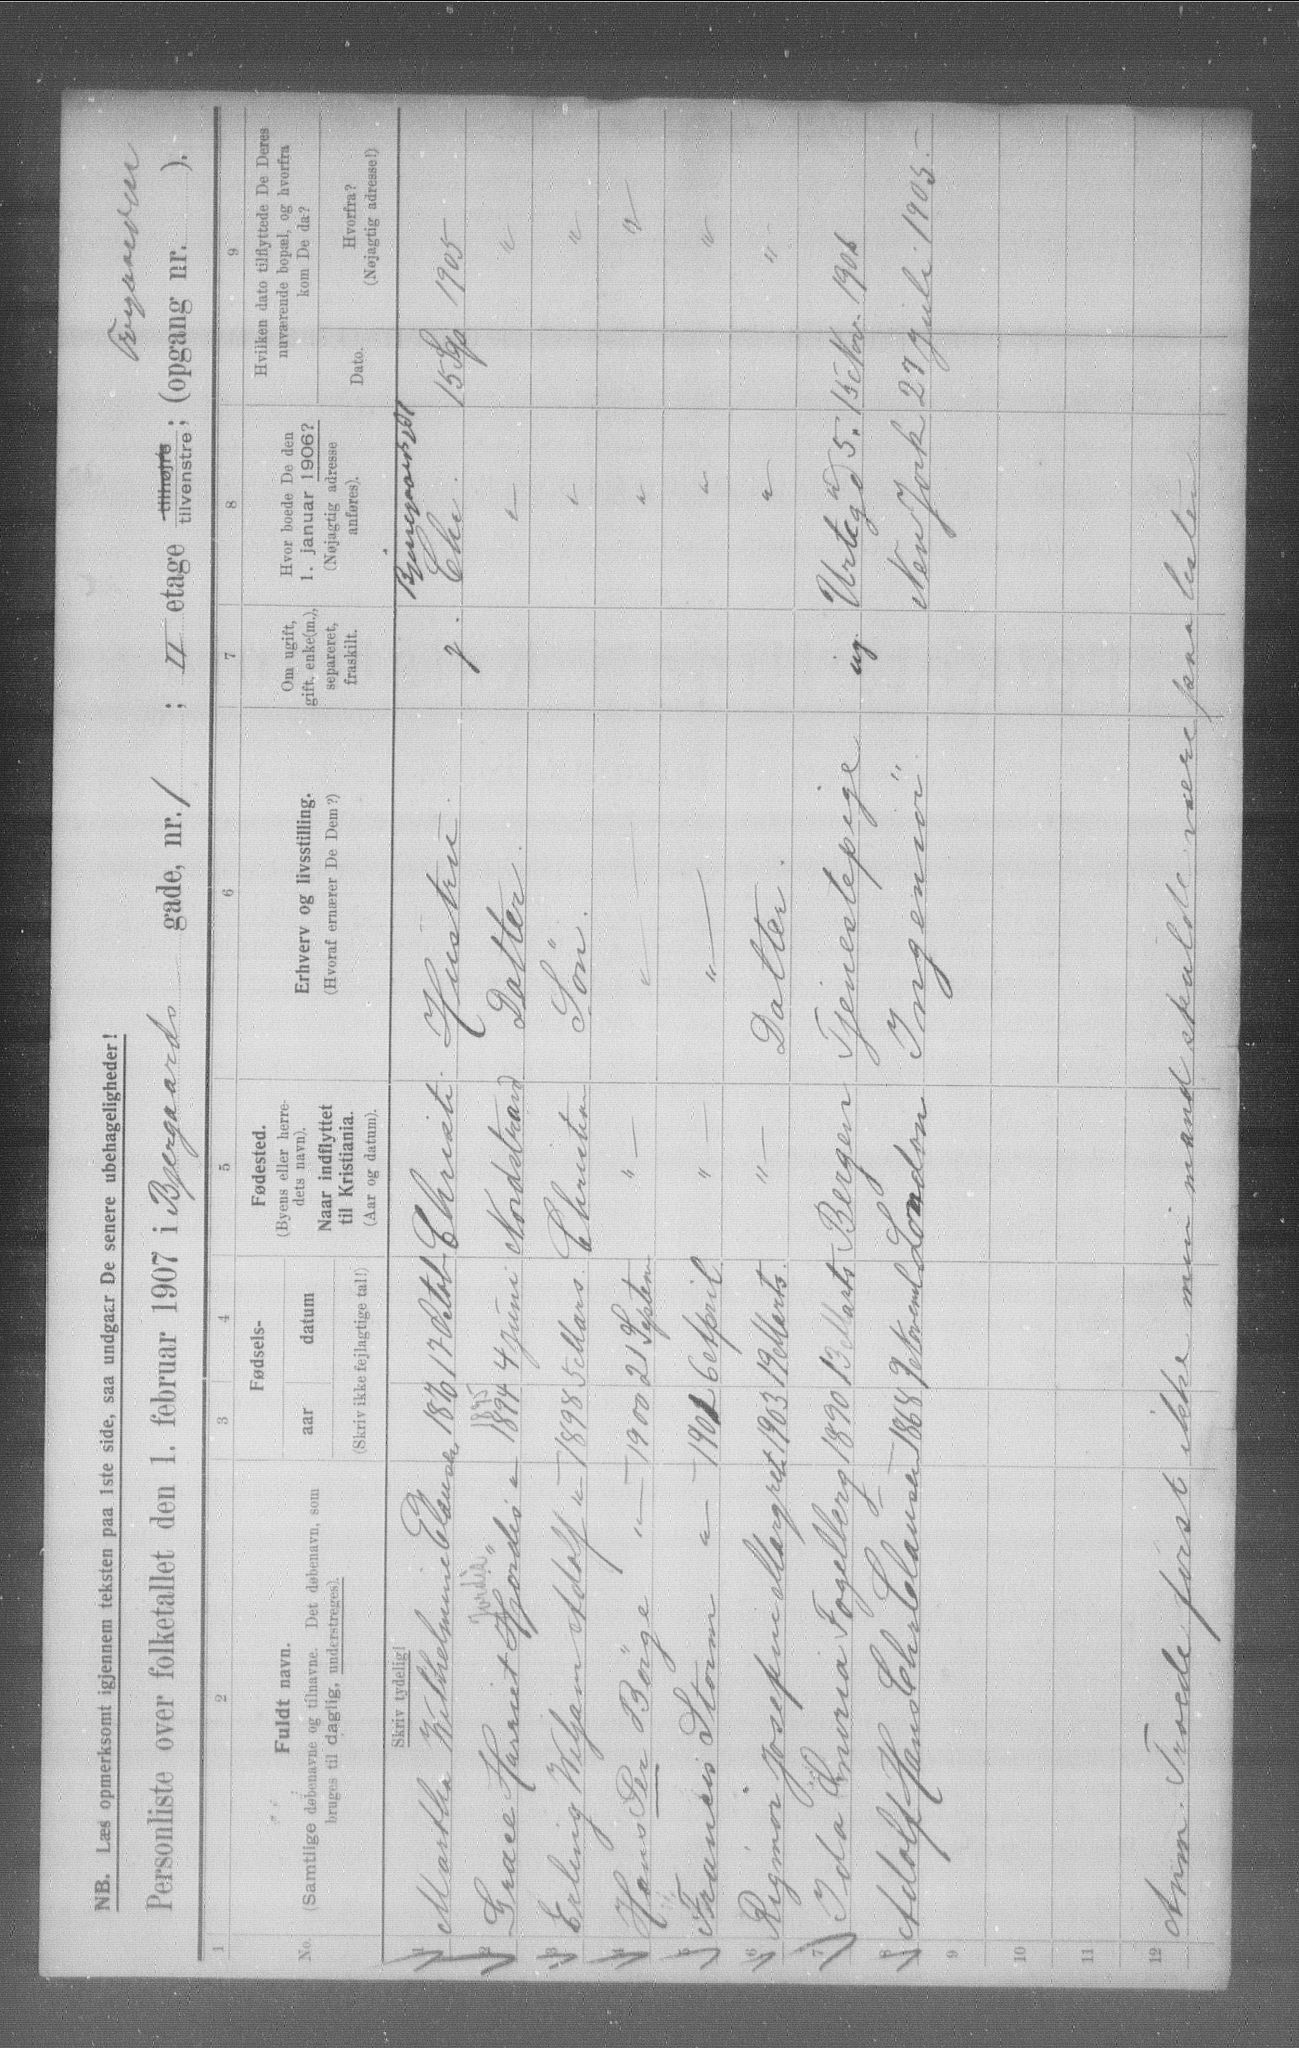 NB. Læs opmerksomt igjennem teksten paa 1ste side, saa undgaar De senere ubehageligheder!
Personliste over folketallet den 1. februar 1907 i Bjergaards gade, nr. 1 ; II etage tilhøjre tilvenstre; (opgang nr. ).
1 2 3 4 5 6 7 8 9
No.
Fuldt navn.
(Samtlige døbenavne og tilnavne. Det døbenavn, som
bruges til daglig, understreges).
Fødsels-
aar datum
(Skriv ikke fejlagtige tal!)
Fødested.
(Byens eller herre-
dets navn).
Naar indflyttet
til Kristiania.
(Aar og datum).
Erhverv og livsstilling.
(Hvoraf ernærer De Dem?)
Om ugift,
gift, enke(m.),
separeret,
fraskilt.
Hvor boede De den
1. januar 1906?
(Nøjagtig adresse
anføres).
Hvilken dato tilflyttede De Deres
nuværende bopæl, og hvorfra
kom De da?
Dato.
Hvorfra?
(Nøjagtig adresse!)
Skriv tydelig!
1 Martha Wilhelmine Clausen 1876 17 Octob Christi. Hustru. g. Chr. 15 Sep 1905
Jordis 1895
2 Grace Harriet Hjördis " 1894 4 Juni Nordstrand Datter. " "
3 Erling Wiljam Adolf " 1898 5 Mars. Christian Sön. " "
4 Hans Per Börge " 1900 21 Septem " " " "
5 Francis Storm " 1901 6 April " " " "
6 Rigmor Josefine Margrete 1903 19 Marts. " Datter. " "
7 Ida Maria Fogelberg 1890 13 Marts Bergen Tjenestepige ug. Urtegd 5. 15 Nov. 1906
8 Adolf Hans Chr. Clausen 1868 9 Novembr London Ingeniör. New York 27 Juli 1905.
9
10
11
12
Anm. Troede först ikke min mand skulde være paa listen